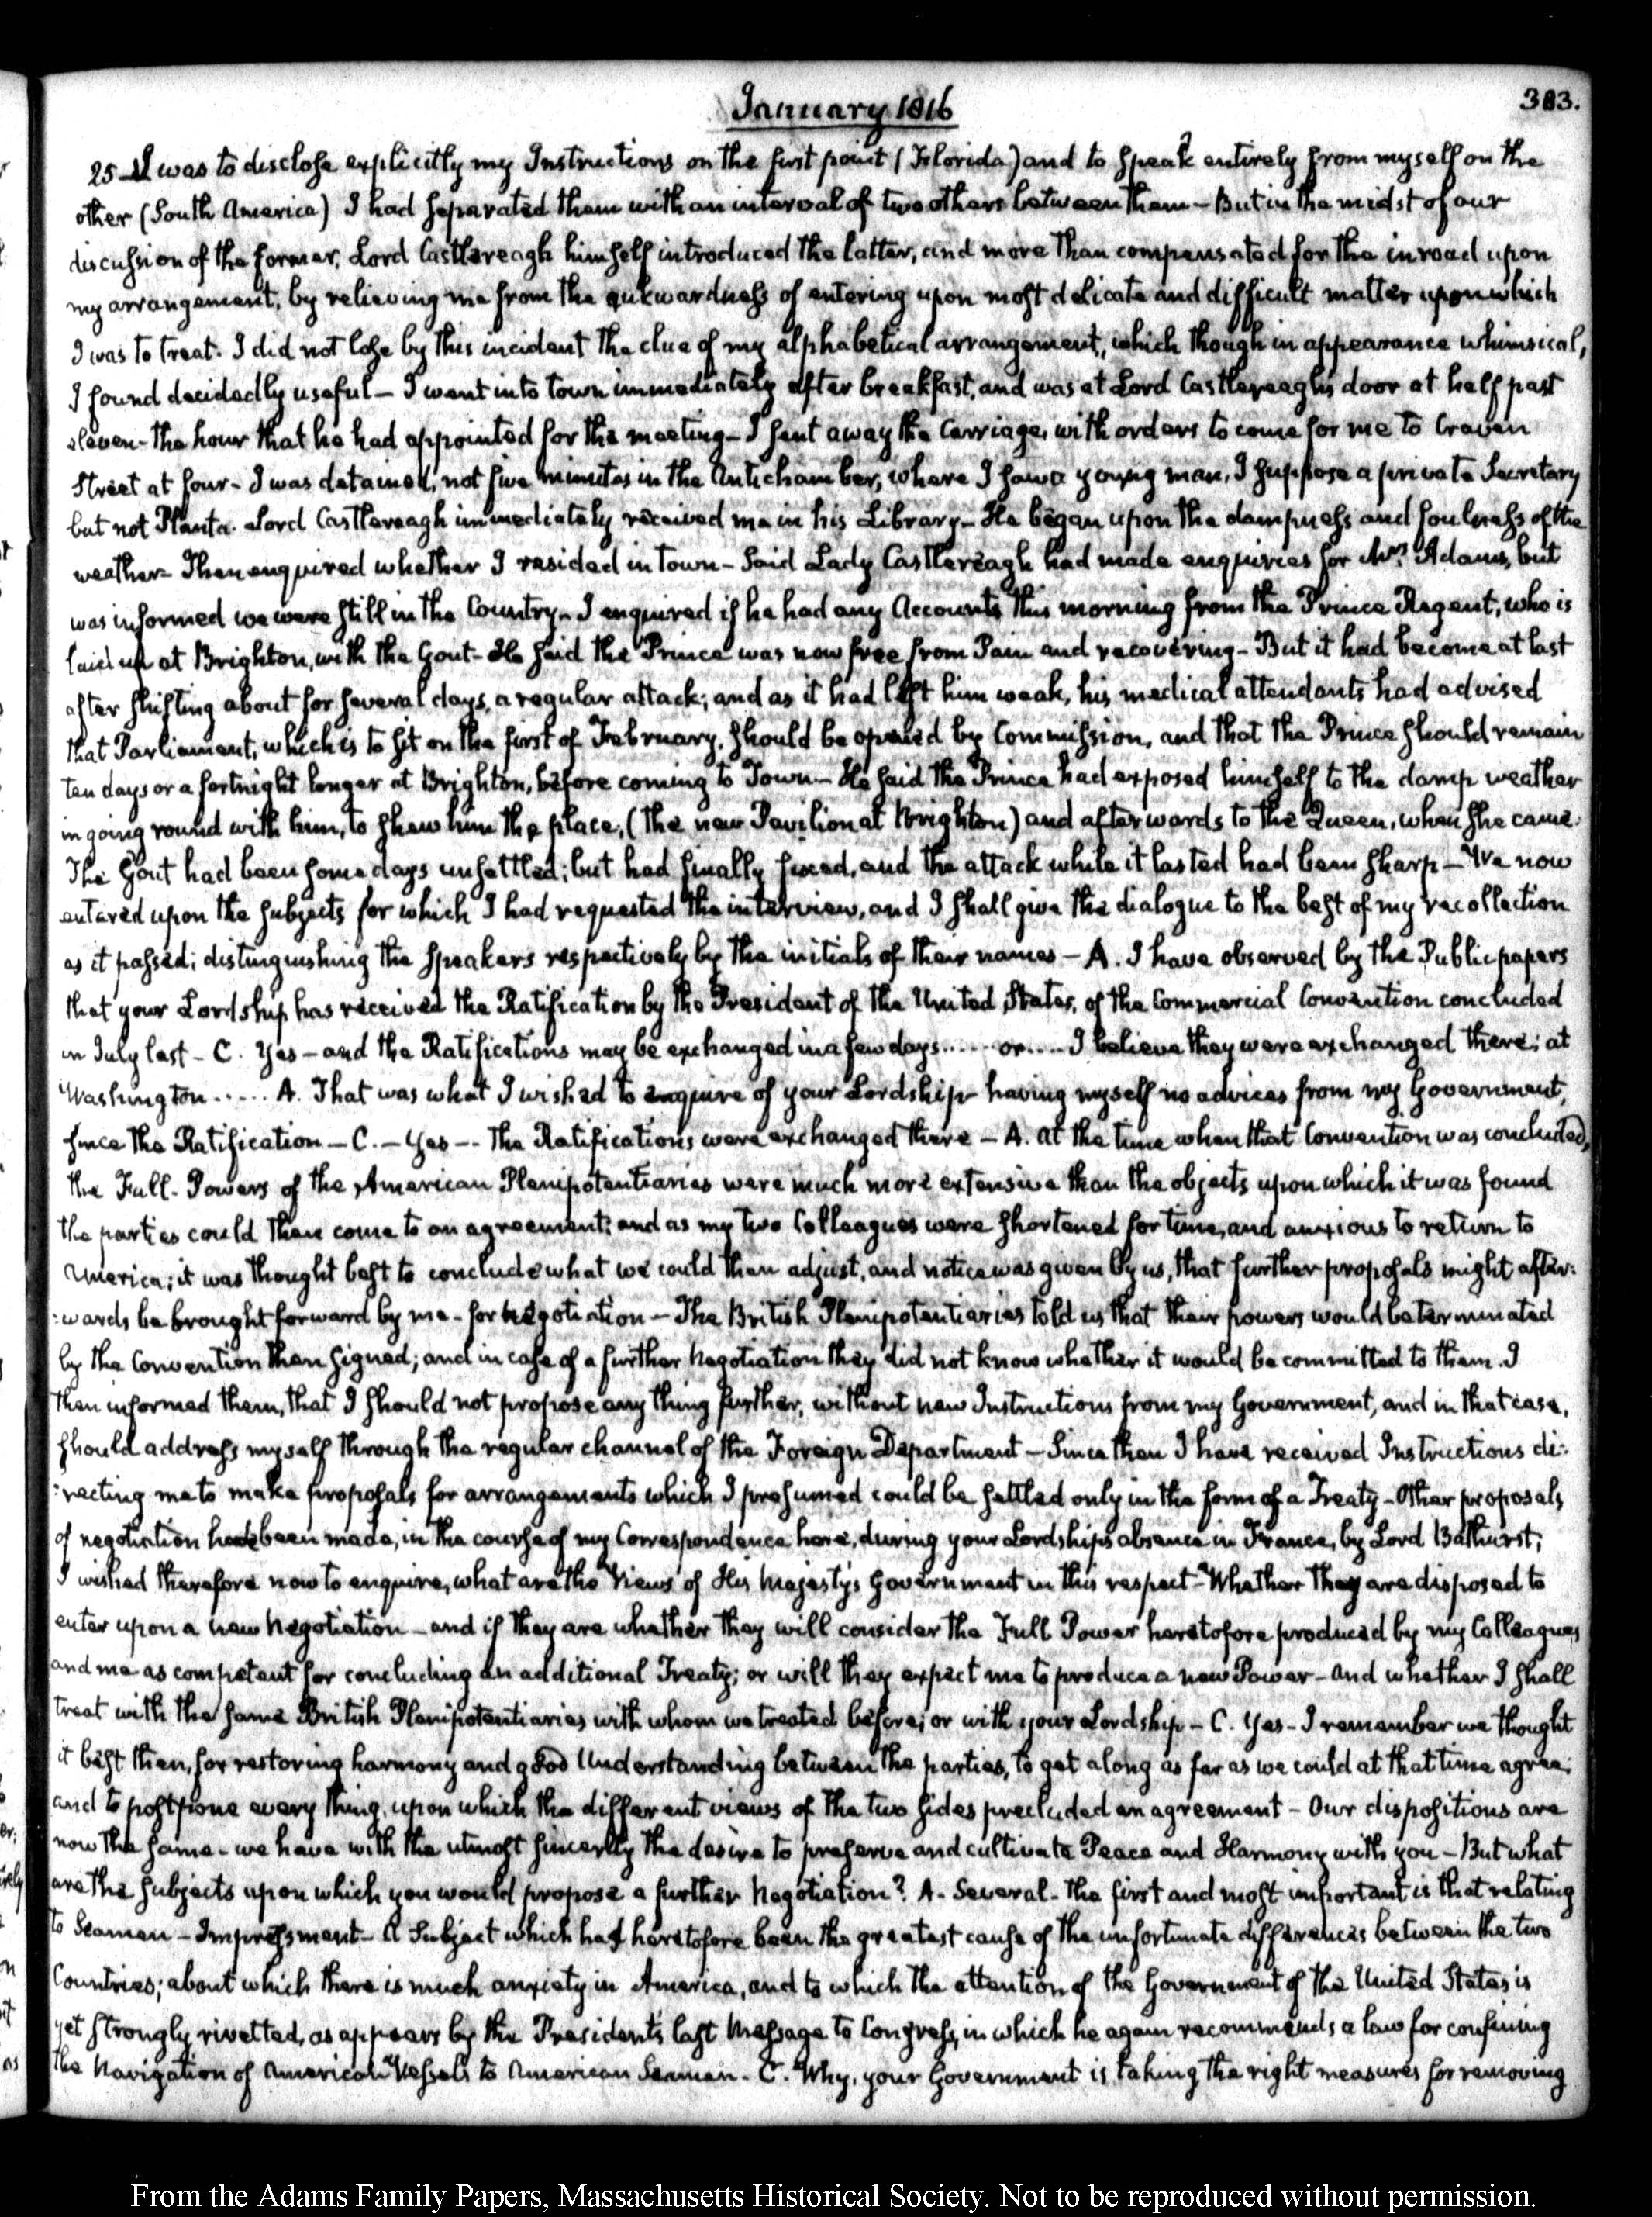 January 1816
383.
25 I was to disclose explicitly my Instructions on the first point (Florida) and to speak entirely from myself on the
other (South America) I had separated them with an interval of two others between them — But in the midst of our
discussion of the former, Lord Castlereagh himself introduced the latter, and more than compensated for the inroad upon
my arrangement, by relieving me from the aukwardness of entering upon most delicate and difficult matter upon which
I was to treat. I did not lose by this incident the clue of my alphabetical arrangement, which though in appearance whimsical,
I found decidedly useful — I went into town immediately after breakfast, and was at Lord Castlereagh's door at half past
eleven - the hour that he had appointed for the meeting — I sent away the Carriage, with orders to come for me to Craven
Street at four - I was detained, not five minutes in the Antichamber, where I saw a young man, I suppose a private Secretary
but not Planta. Lord Castlereagh immediately received me in his Library — He began upon the dampness and foulness of the
weather - Then enquired whether I resided in town - Said Lady Castlereagh had made enquiries for Mrs. Adams, but
was informed we were still in the Country — I enquired if he had any Accounts this morning from the Prince Regent, who is
laid up at Brighton, with the Gout — He said the Prince was now free from Pain and recovering - But it had become at last
after shifting about for several days, a regular attack; and as it had left him weak, his medical attendants had advised
that Parliament, which is to sit on the first of February, should be opened by Commission, and that the Prince should remain
ten days or a fortnight longer at Brighton, before coming to Town — He said the Prince had exposed himself to the damp weather
in going round with him, to shew him the place, (the new Pavilion at Brighton) and afterwards to the Queen, when she came.
The Gout had been some days unsettled; but had finally fixed, and the attack while it lasted had been sharp — We now
entered upon the subjects for which I had requested the interview, and I shall give the dialogue to the best of my recollection
as it passed; distinguishing the speakers respectively by the initials of their names — A. I have observed by the Public papers
that your Lordship has received the Ratification by the President of the United States, of the Commercial Convention concluded
in July last - C. Yes — and the Ratifications may be exchanged in a few days ..... or .... I believe they were exchanged there; at
Washington ..... A. That was what I wished to enquire of your Lordship having myself no advices from my Government,
since the Ratification — C. — Yes -- The Ratifications were exchanged there — A. At the time when that Convention was concluded,
the Full-Powers of the American Plenipotentiaries were much more extensive than the objects upon which it was found
the parties could then come to an agreement; and as my two Colleagues were shortened for time, and anxious to return to
America; it was thought best to conclude what we could then adjust, and notice was given by us, that further proposals might after:
:wards be brought forward by me - for negotiation — The British Plenipotentiaries told us that their powers would be terminated
by the Convention then signed; and in case of a further Negotiation they did not know whether it would be committed to them. I
then informed them, that I should not propose any thing further, without new Instructions from my Government, and in that case,
should address myself through the regular channel of the Foreign Department — Since then I have received Instructions di:
:recting me to make proposals for arrangements which I presumed could be settled only in the form of a Treaty - Other proposals
of negotiation have been made, in the course of my Correspondence here, during your Lordship's absence in France, by Lord Bathurst;
I wished therefore now to enquire, what are the Views of His Majesty's Government in this respect - Whether they are disposed to
enter upon a new Negotiation — and if they are whether they will consider the Full Power heretofore produced by my Colleagues
and me as competent for concluding an additional Treaty; or will they expect me to produce a new Power — And whether I shall
treat with the same British Plenipotentiaries with whom we treated before; or with your Lordship — C. Yes - I remember we thought
it best then, for restoring harmony and good Understanding between the parties, to get along as far as we could at that time agree;
and to postpone every thing, upon which the different views of the two sides precluded an agreement - Our dispositions are
now the same - we have with the utmost sincerity the desire to preserve and cultivate Peace and Harmony with you — But what
are the subjects upon which you would propose a further Negotiation? A. Several - The first and most important is that relating
to Seamen — Impressment — A Subject which has heretofore been the greatest cause of the unfortunate differences between the two
Countries; about which there is much anxiety in America, and to which the attention of the Government of the United States is
yet strongly rivetted, as appears by the President's last Message to Congress, in which he again recommends a law for confining
the Navigation of American Vessels to American Seamen. C. Why, your Government is taking the right measures for removing
From the Adams Family Papers, Massachusetts Historical Society. Not to be reproduced without permission.